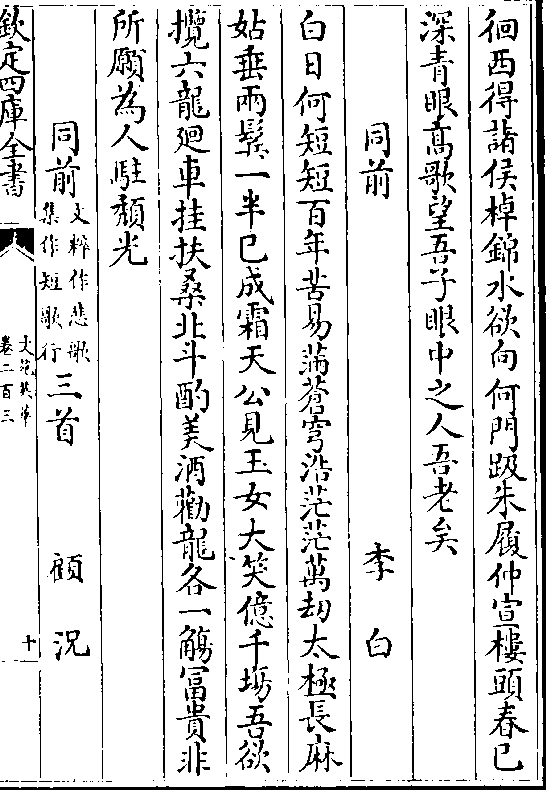 徊西得諸侯棹錦水欲向何門趿朱履仲宣樓頭春已
深青眼髙歌望吾子眼中之人吾老矣
同前 李白
白日何短短百年苦易滿蒼穹浩茫茫萬劫太極長麻
姑垂兩鬂一半已成霜天公見玉女大笑億千塲吾欲
攬六龍廻車挂扶桑北斗酌美酒勸龍各一觴冨貴非
所願為人駐頽光
同前文粹作悲歌集作短歌行三首 顧況
欽定四庫全書
文苑英華
卷二百三
十